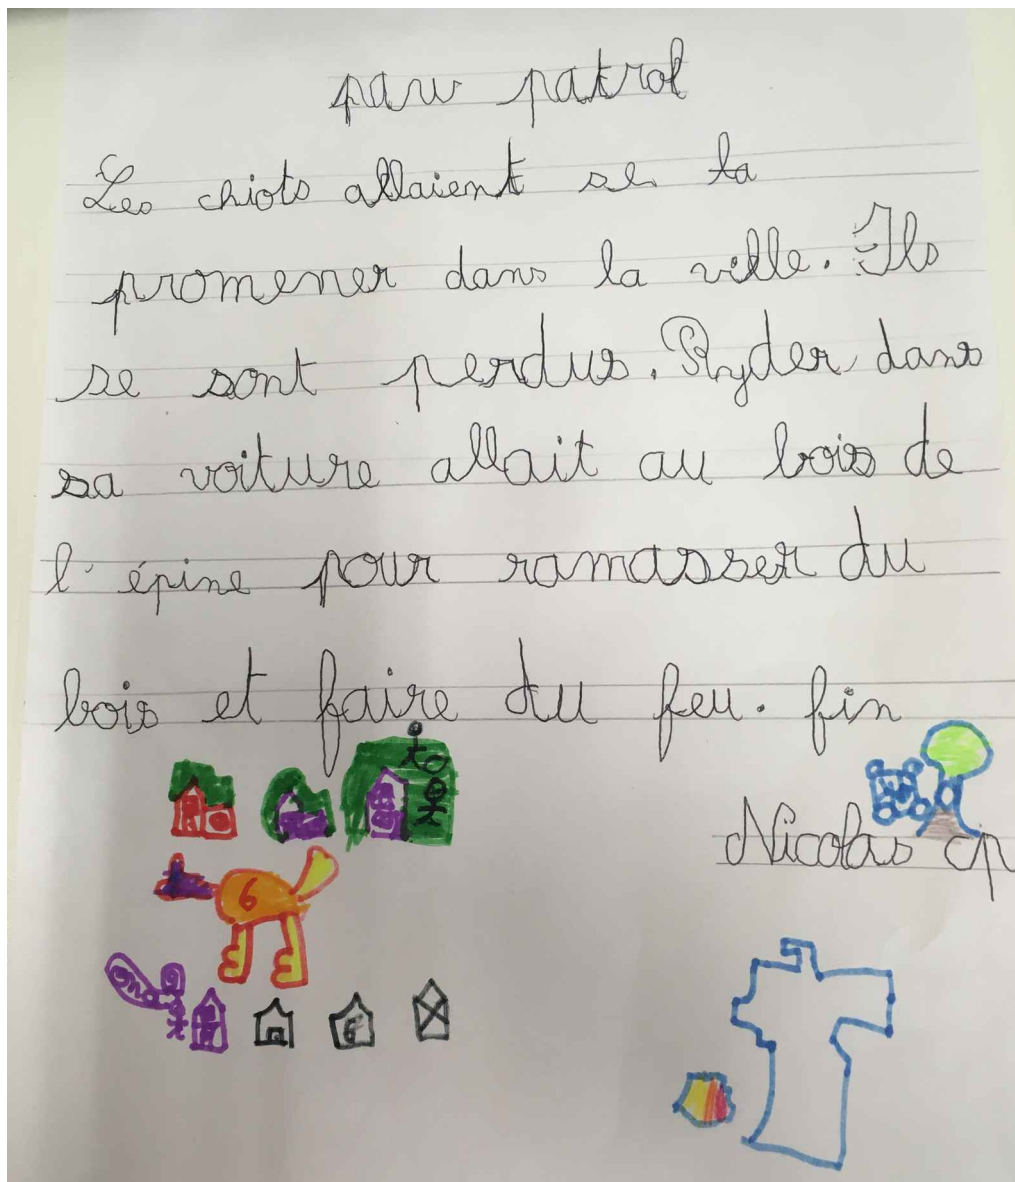 paw patrol
Les chiots allaient se la
promener dans la ville. Ils
se sont perdus. Ryder dans
sa voiture allait au bois de
l'épine pour ramasser du
bois et faire du feu. fin
Nicolas cp
6